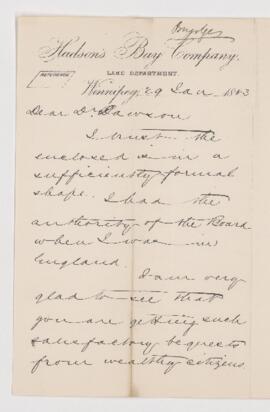 Hudson's Bay Company.
LAND DEPARTMENT.
REFERENCE
Winnipeg, 29 Jan 1883
Dear Dr Dawson
I trust the
enclosed is in a
sufficiently formal
shape. I had the
authority of the Board
when I was in
England.
I am very
glad to see that
you are getting such
satisfactory bequests
from wealthy citizens